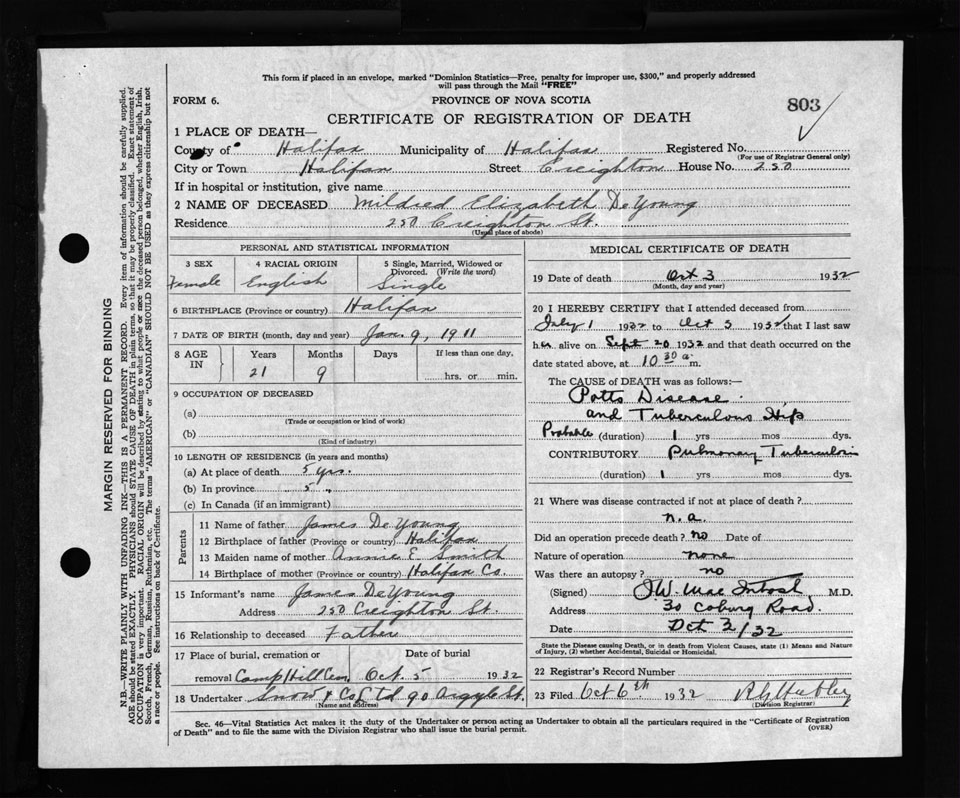 This form if placed in an envelope, marked "Dominion Statistics—Free, penalty for improper use, $300," and properly addressed
will pass through the Mail "FREE"
FORM 6. PROVINCE OF NOVA SCOTIA 803
CERTIFICATE OF REGISTRATION OF DEATH
1 PLACE OF DEATH—
County of Halifax Municipality of Halifax Registered No.
(For use of Registrar General only)
City or Town Halifax Street Creighton House No. 250
If in hospital or institution, give name
2 NAME OF DECEASED Mildred Elizabeth DeYoung
Residence 250 Creighton St.
(Usual place of abode)
PERSONAL AND STATISTICAL INFORMATION
3 SEX 4 RACIAL ORIGIN 5 Single, Married, Widowed or
Divorced. (Write the word)
Female English Single
6 BIRTHPLACE (Province or country) Halifax
7 DATE OF BIRTH (month, day and year) Jan. 9, 1911
8 AGE IN Years Months Days If less than one day,
21 9 hrs. or min.
9 OCCUPATION OF DECEASED
(a)
(Trade or occupation or kind of work)
(b)
(Kind of industry)
10 LENGTH OF RESIDENCE (in years and months)
(a) At place of death 5 yrs.
(b) In province 5 "
(c) In Canada (if an immigrant)
Parents
11 Name of father James DeYoung
12 Birthplace of father (Province or country) Halifax
13 Maiden name of mother Annie E. Smith
14 Birthplace of mother (Province or country) Halifax Co.
15 Informant's name James DeYoung
Address 250 Creighton St.
16 Relationship to deceased Father
17 Place of burial, cremation or Date of burial
removal Camp Hill Cem Oct. 5 1932
18 Undertaker Snow & Co Ltd 90 Argyle St.
(Name and address)
MEDICAL CERTIFICATE OF DEATH
19 Date of death Oct 3 1932
(Month, day and year)
20 I HEREBY CERTIFY that I attended deceased from
July 1 1932 to Oct 3 1932 that I last saw
her alive on Sept 20 1932 and that death occurred on the
date stated above, at 10 30 a. m.
The CAUSE of DEATH was as follows:—
Potts Disease
and Tuberculous Hip
Probable (duration) 1 yrs mos dys.
CONTRIBUTORY Pulmonary Tuberculosis
(duration) 1 yrs mos dys.
21 Where was disease contracted if not at place of death?
n.a.
Did an operation precede death? no Date of
Nature of operation none
Was there an autopsy? no
(Signed) J.W. MacIntosh, M.D.
Address 30 Coburg Road.
Date Oct 3/32
State the Disease causing Death, or in death from Violent Causes, state (1) Means and Nature
of Injury, (2) whether Accidental, Suicidal or Homicidal.
22 Registrar's Record Number
23 Filed Oct 6th 1932
(Division Registrar)
Sec. 46—Vital Statistics Act makes it the duty of the Undertaker or person acting as Undertaker to obtain all the particulars required in the "Certificate of Registration
of Death" and to file the same with the Division Registrar who shall issue the burial permit.
(OVER)
MARGIN RESERVED FOR BINDING
N.B.—WRITE PLAINLY WITH UNFADING INK—THIS IS A PERMANENT RECORD. Every item of information should be carefully supplied.
AGE should be stated EXACTLY. PHYSICIANS should STATE CAUSE OF DEATH in plain terms, so that it may be properly classified. Exact statement of
OCCUPATION is very important. RACIAL ORIGIN will be described by stating to what people or race the deceased person belonged, whether English, Irish,
Scotch, French, German, Russian, Ruthenian, etc. The terms "AMERICAN" or "CANADIAN" SHOULD NOT BE USED as they express citizenship but not
a race or people. See instructions on back of Certificate.